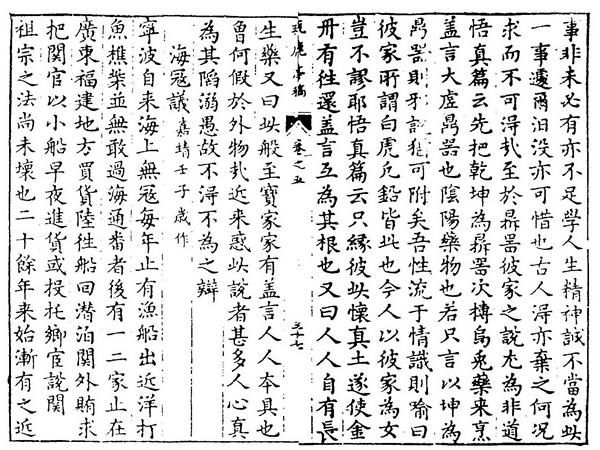 事非未必有亦不足學人生精神誠不當為此
一事遽爾汩没亦可惜也古人淂亦棄之何况
求而不可淂㢤至於鼎噐彼家之說尤為非道
悟真篇云先把乾坤為鼎噐次摶烏兎藥来烹
盖言大虚鼎噐也隂陽藥物也若只言以坤為
鼎噐則邪說猶可附矣吾性流于情識則喻曰
彼家所謂白虎兌鉛皆此也今人以彼家為女
豈不謬耶悟真篇云只縁彼此懐真土遂使金
丹有徃還盖言互為其根也又曰人人自有長
玩鹿亭稿 卷之五 五十七
生藥又曰此般至寶家家有盖言人人夲具也
曾何假於外物㢤近来惑此說者甚多人心真
為其䧟溺愚故不淂不為之辯
海冦議 嘉靖壬子歳作
寧波自来海上無冦每年止有漁船出近洋打
魚樵柴並無敢過海通番者後有一二家止在
廣東福建地方買貨陸徃船回潛泊関外賄求
把関官以小船早夜進貨或投托鄉宦說関
祖宗之法尚未壞也二十餘年来始漸有之近